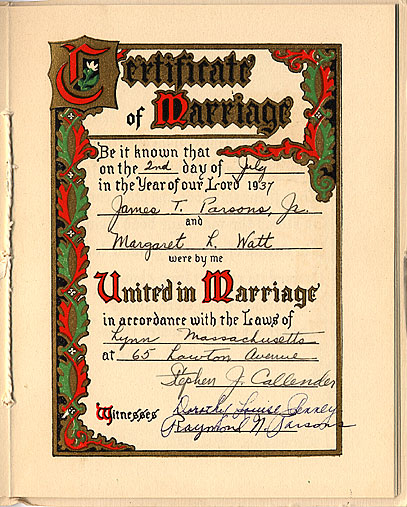 Certificate
of Marriage
Be it known that
on the 2nd day of July
in the Year of our Lord 1937
James T. Parsons, Jr.
and
Margaret L. Watt
were by me
United in Marriage
in accordance with the Laws of
Lynn Massachusetts
at 65 Lawton Avenue
Stephen J. Callender
Witnesses Dorothy Louise Penney
Raymond N. Parsons